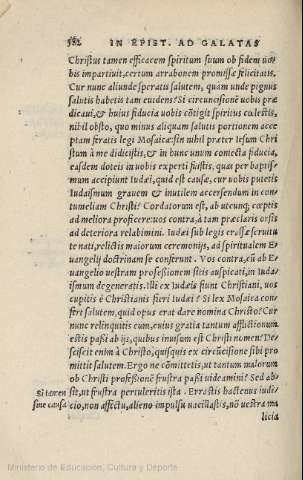 582 IN EPIST. AD GALATAS
Christus tamen efficacem spiritum suum ob fidem uo-
bis impartiuit, certum arrabonem promissæ felicitatis.
Cur nunc aliunde speratis salutem, quàm unde pignus
salutis habetis tam euidens? Si circuncisionē uobis præ
dicaui, & huius fiducia uobis cōtigit spiritus cœlestis,
nihil obsto, quo minus aliquam salutis portionem acce
ptam feratis legi Mosaicæ: sin nihil præter Iesum Chri
stum à me didicistis, & in hunc unum coniecta fiducia,
easdem doteis in uobis experti fuistis, quas per baptis-
mum accipiunt Iudæi, quid est causæ, cur uobis putetis
Iudaismum grauem & inutilem accersendum in con-
tumeliam Christi? Cordatorum est, ab utcunq; cœptis
ad meliora proficere: uos contrà, à tam præclaris orsis
ad deteriora relabimini. Iudæi sub legis crassæ seruitu
te nati, relictis maiorum ceremonijs, ad spiritualem E-
uangelij doctrinam se conferunt. Vos contrà, cū ab E-
uangelio uestram professionem sitis auspicati, in Iuda-
ismum degeneratis. Illi ex Iudæis fiunt Christiani, uos
cupitis è Christianis fieri Iudæi? Si lex Mosaica con-
fert salutem, quid opus erat dare nomina Christo? Cur
nunc relinquitis eum, cuius gratia tantum afflictionum
estis passi ab ijs, quibus inuisum est Christi nomen? De-
sciscit enim à Christo, quisquis ex circūcisione sibi pro
mittit salutem. Ergo ne cōmittetis, ut tantum malorum
ob Christi professionē frustra passi uideamini? Sed ab-
Si tamen sit, ut frustra pertuleritis ista. Errastis hactenus iudi-
sine causa cio, non affectu, alieno impulsu uacillastis, nō uestra ma
licia
Ministerio de Educación, Cultura y Deporte